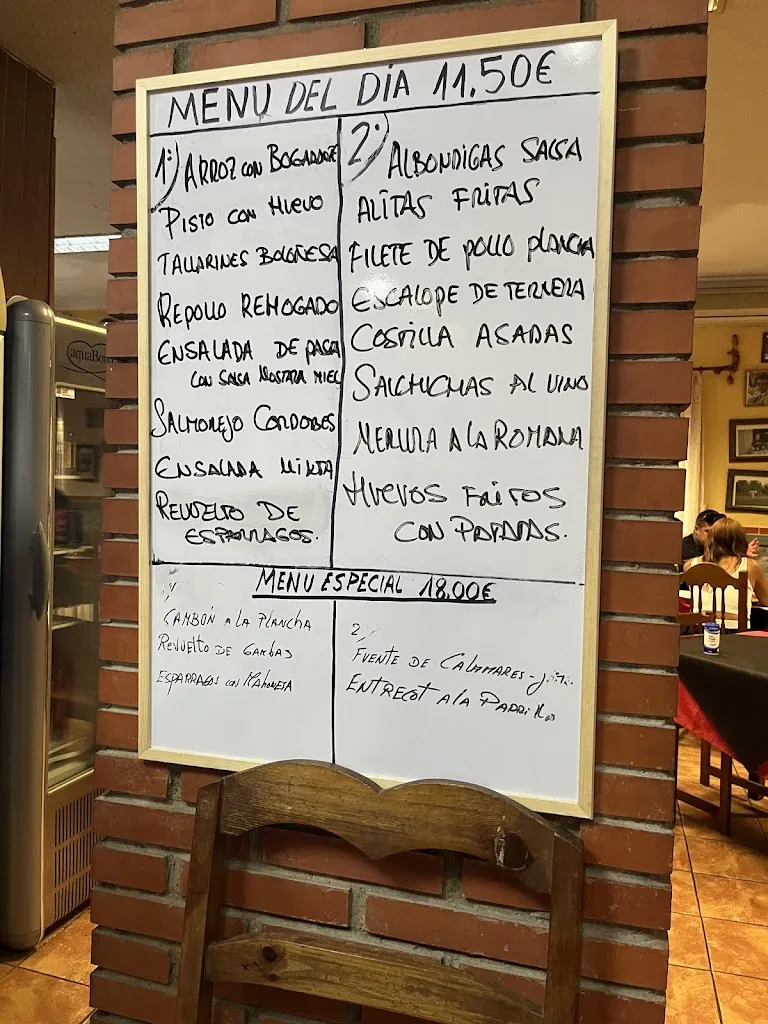 MENU DEL DÍA 11.50€
1º) ARROZ CON BOGAVANTE
PISTO CON HUEVO
TALLARINES BOLOÑESA
REPOLLO REHOGADO
ENSALADA DE PASTA
CON SALSA MOSTAZA MIEL
SALMOREJO CORDOBES
ENSALADA MIXTA
REVUELTO DE
ESPARRAGOS.
2º) ALBONDIGAS SALSA
ALITAS FRITAS
FILETE DE POLLO PLANCHA
ESCALOPE DE TERNERA
COSTILLA ASADAS
SALCHICHAS AL VINO
MERLUZA A LA ROMANA
HUEVOS FRITOS
CON PATATAS.
MENU ESPECIAL 18,00€
GAMBÓN A LA PLANCHA
REVUELTO DE GAMBAS
ESPARRAGOS CON MAHONESA
2
FUENTE DE CALAMARES-
ENTRECOT A LA PARRILLA
aquaBona